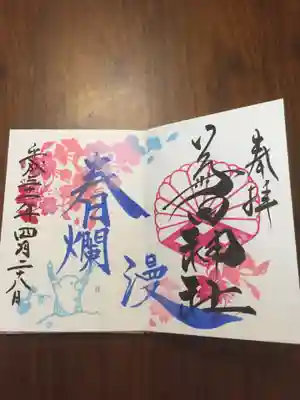 奉拝
神社
春爛
漫
平成三十一年四月二十八日